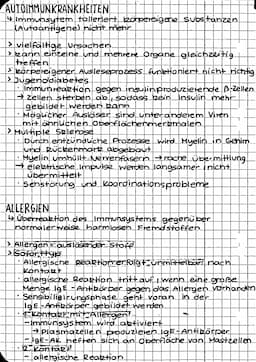 AUTOIMMUNKRANKHEITEN
↳ Immunsystem toleriert körpereigene Substanzen
(Autoantigene) nicht mehr
> vielfältige Ursachen
> kann einzelne und mehrere Organe gleichzeitig
treffen
> körpereigener Ausleseprozess funktioniert nicht richtig
> Jugenddiabetes
- Immunreaktion gegen insulinproduzierende β-Zellen
→ Zellen sterben ab, sodass kein Insulin mehr
gebildet werden kann
- Möglicher Auslöser sind unter anderem Viren
mit ähnlichen Oberflächenmerkmalen
> Multiple Sklerose
- Durch entzündliche Prozesse wird Myelin in Gehirn
und Rückenmark abgebaut
- Myelin umhüllt Nervenfasern → rasche Übermittlung
→ elektrische Impulse werden langsamer / nicht
übermittelt
- Sehstörung und Koordinationsprobleme
ALLERGIEN
↳ Überreaktion des Immunsystems gegenüber
normalerweise harmlosen Fremdstoffen
> Allergen = auslösender Stoff
> Soforttyp
- Allergische Reaktion erfolgt unmittelbar nach
Kontakt
- allergische Reaktion tritt auf, wenn eine große
Menge IgE-Antikörper gegen das Allergen vorhanden
- Sensibilisierungsphase geht voran in der
IgE-Antikörper gebildet werden
1. Kontakt mit Allergen
- Immunsystem wird aktiviert
→ Plasmazellen produzieren IgE-Antikörper
- IgE-AK heften sich an Oberfläche von Mastzellen
2. Kontakt
- allergische Reaktion